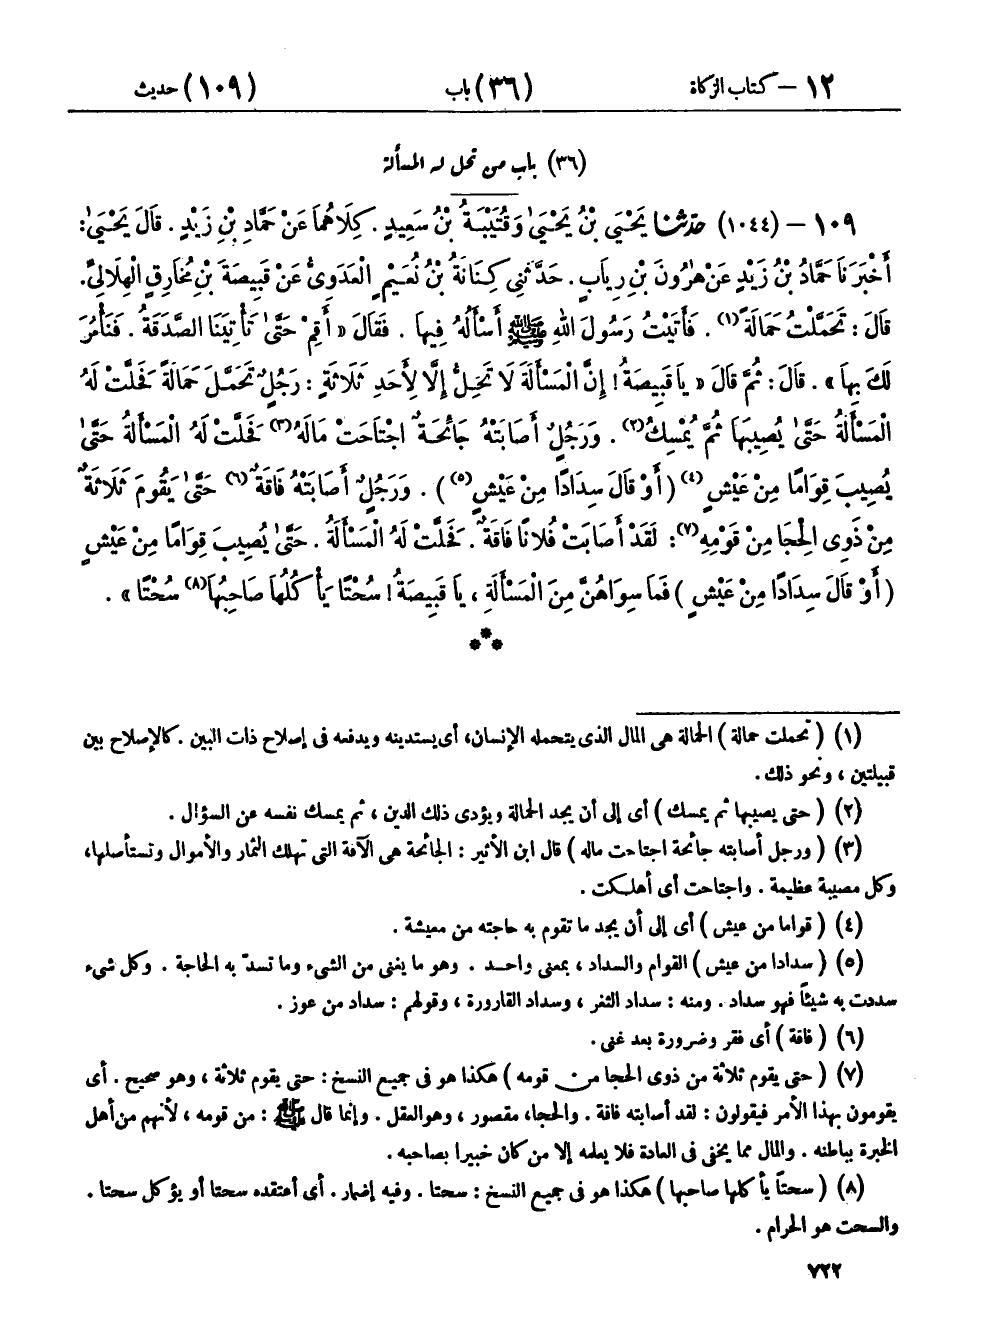 ١٢ – كتاب الزكاة (٣٦) باب (١٠٩) حديث
(٣٦) باب من تحل له المسألة
١٠٩ – (١٠٤٤) حدّثنا يَحْيَى بْنُ يَحْيَىٰ وَقُتَيْبَةُ بْنُ سَعِيدٍ . كِلَاهُمَا عَنْ حَمَّادِ بْنِ زَيْدٍ . قَالَ يَحْيَىٰ:
أَخْبَرَنَا حَمَّادُ بْنُ زَيْدٍ عَنْ هٰرُونَ بْنِ رِيَابٍ . حَدَّثَنِي كِنَانَةُ بْنُ نُعَيْمٍ الْعَدَوِىُّ عَنْ قَبِيصَةَ بْنِ مُخَارِقٍ الْهِلَالِىِّ.
قَالَ : تَحَمَّلْتُ حَمَالَةً (١) . فَأَتَيْتُ رَسُولَ اللهِ ﷺ أَسْأَلُهُ فِيهَا . فَقَالَ « أَقِمْ حَتَّىٰ تَأْتِيَنَا الصَّدَقَةُ . فَنَأْمُرَ
لَكَ بِهَا » . قَالَ : ثُمَّ قَالَ « يَا قَبِيصَةُ ! إِنَّ الْمَسْأَلَةَ لَا تَحِلُّ إِلَّا لِأَحَدِ ثَلَاثَةٍ : رَجُلٍ تَحَمَّلَ حَمَالَةً فَحَلَّتْ لَهُ
الْمَسْأَلَةُ حَتَّىٰ يُصِيبَهَا ثُمَّ يُمْسِكُ (٢) . وَرَجُلٍ أَصَابَتْهُ جَائِحَةٌ اجْتَاحَتْ مَالَهُ (٣) فَحَلَّتْ لَهُ الْمَسْأَلَةُ حَتَّىٰ
يُصِيبَ قِوَامًا مِنْ عَيْشٍ (٤) ( أَوْ قَالَ سِدَادًا مِنْ عَيْشٍ (٥) ) . وَرَجُلٍ أَصَابَتْهُ فَاقَةٌ (٦) حَتَّىٰ يَقُومَ ثَلَاثَةٌ
مِنْ ذَوِى الْحِجَا مِنْ قَوْمِهِ (٧) : لَقَدْ أَصَابَتْ فُلَانًا فَاقَةٌ . فَحَلَّتْ لَهُ الْمَسْأَلَةُ . حَتَّىٰ يُصِيبَ قِوَامًا مِنْ عَيْشٍ
( أَوْ قَالَ سِدَادًا مِنْ عَيْشٍ ) فَمَا سِوَاهُنَّ مِنَ الْمَسْأَلَةِ ، يَا قَبِيصَةُ ! سُحْتًا يَأْكُلُهَا صَاحِبُهَا (٨) سُحْتًا » .
(١) ( تحملت حمالة ) الحمالة هى المال الذى يتحمله الإنسان، أى يستدينه ويدفعه فى إصلاح ذات البين . كالإصلاح بين
قبيلتين ، ونحو ذلك .
(٢) ( حتى يصيبها ثم يمسك ) أى إلى أن يجد الحمالة ويؤدى ذلك الدين ، ثم يمسك نفسه عن السؤال .
(٣) ( ورجل أصابته جائحة اجتاحت ماله ) قال ابن الأثير : الجائحة هى الآفة التى تهلك الثمار والأموال وتستأصلها،
وكل مصيبة عظيمة . واجتاحت أى أهلكت .
(٤) ( قواما من عيش ) أى إلى أن يجد ما تقوم به حاجته من معيشة .
(٥) ( سدادا من عيش ) القوام والسداد ، بمعنى واحد . وهو ما يغنى من الشىء وما تسدّ به الحاجة . وكل شىء
سددت به شيئاً فهو سداد . ومنه : سداد الثغر ، وسداد القارورة ، وقولهم : سداد من عوز .
(٦) ( فاقة ) أى فقر وضرورة بعد غنى .
(٧) ( حتى يقوم ثلاثة من ذوى الحجا من قومه ) هكذا هو فى جميع النسخ : حتى يقوم ثلاثة ، وهو صحيح . أى
يقومون بهذا الأمر فيقولون : لقد أصابته فاقة . والحجا، مقصور ، وهو العقل . وإنما قال ﷺ : من قومه ، لأنهم من أهل
الخبرة بباطنه . والمال مما يخفى فى العادة فلا يعلمه إلا من كان خبيرا بصاحبه .
(٨) ( سحتاً يأكلها صاحبها ) هكذا هو فى جميع النسخ : سحتا . وفيه إضمار . أى أعتقده سحتا أو يؤكل سحتا .
والسحت هو الحرام .
٧٢٢